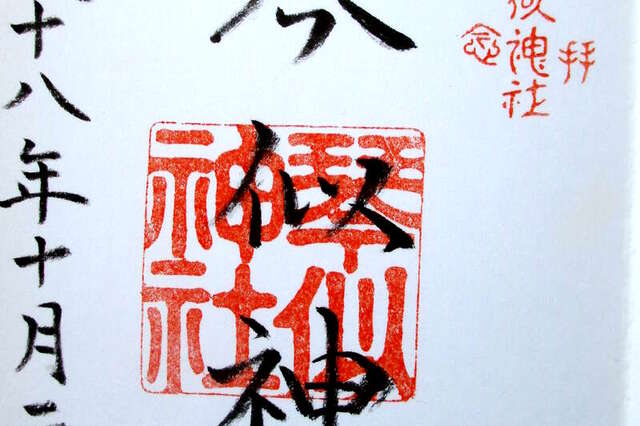 拝
神社
念
似神
琴似
神社
十八年十月